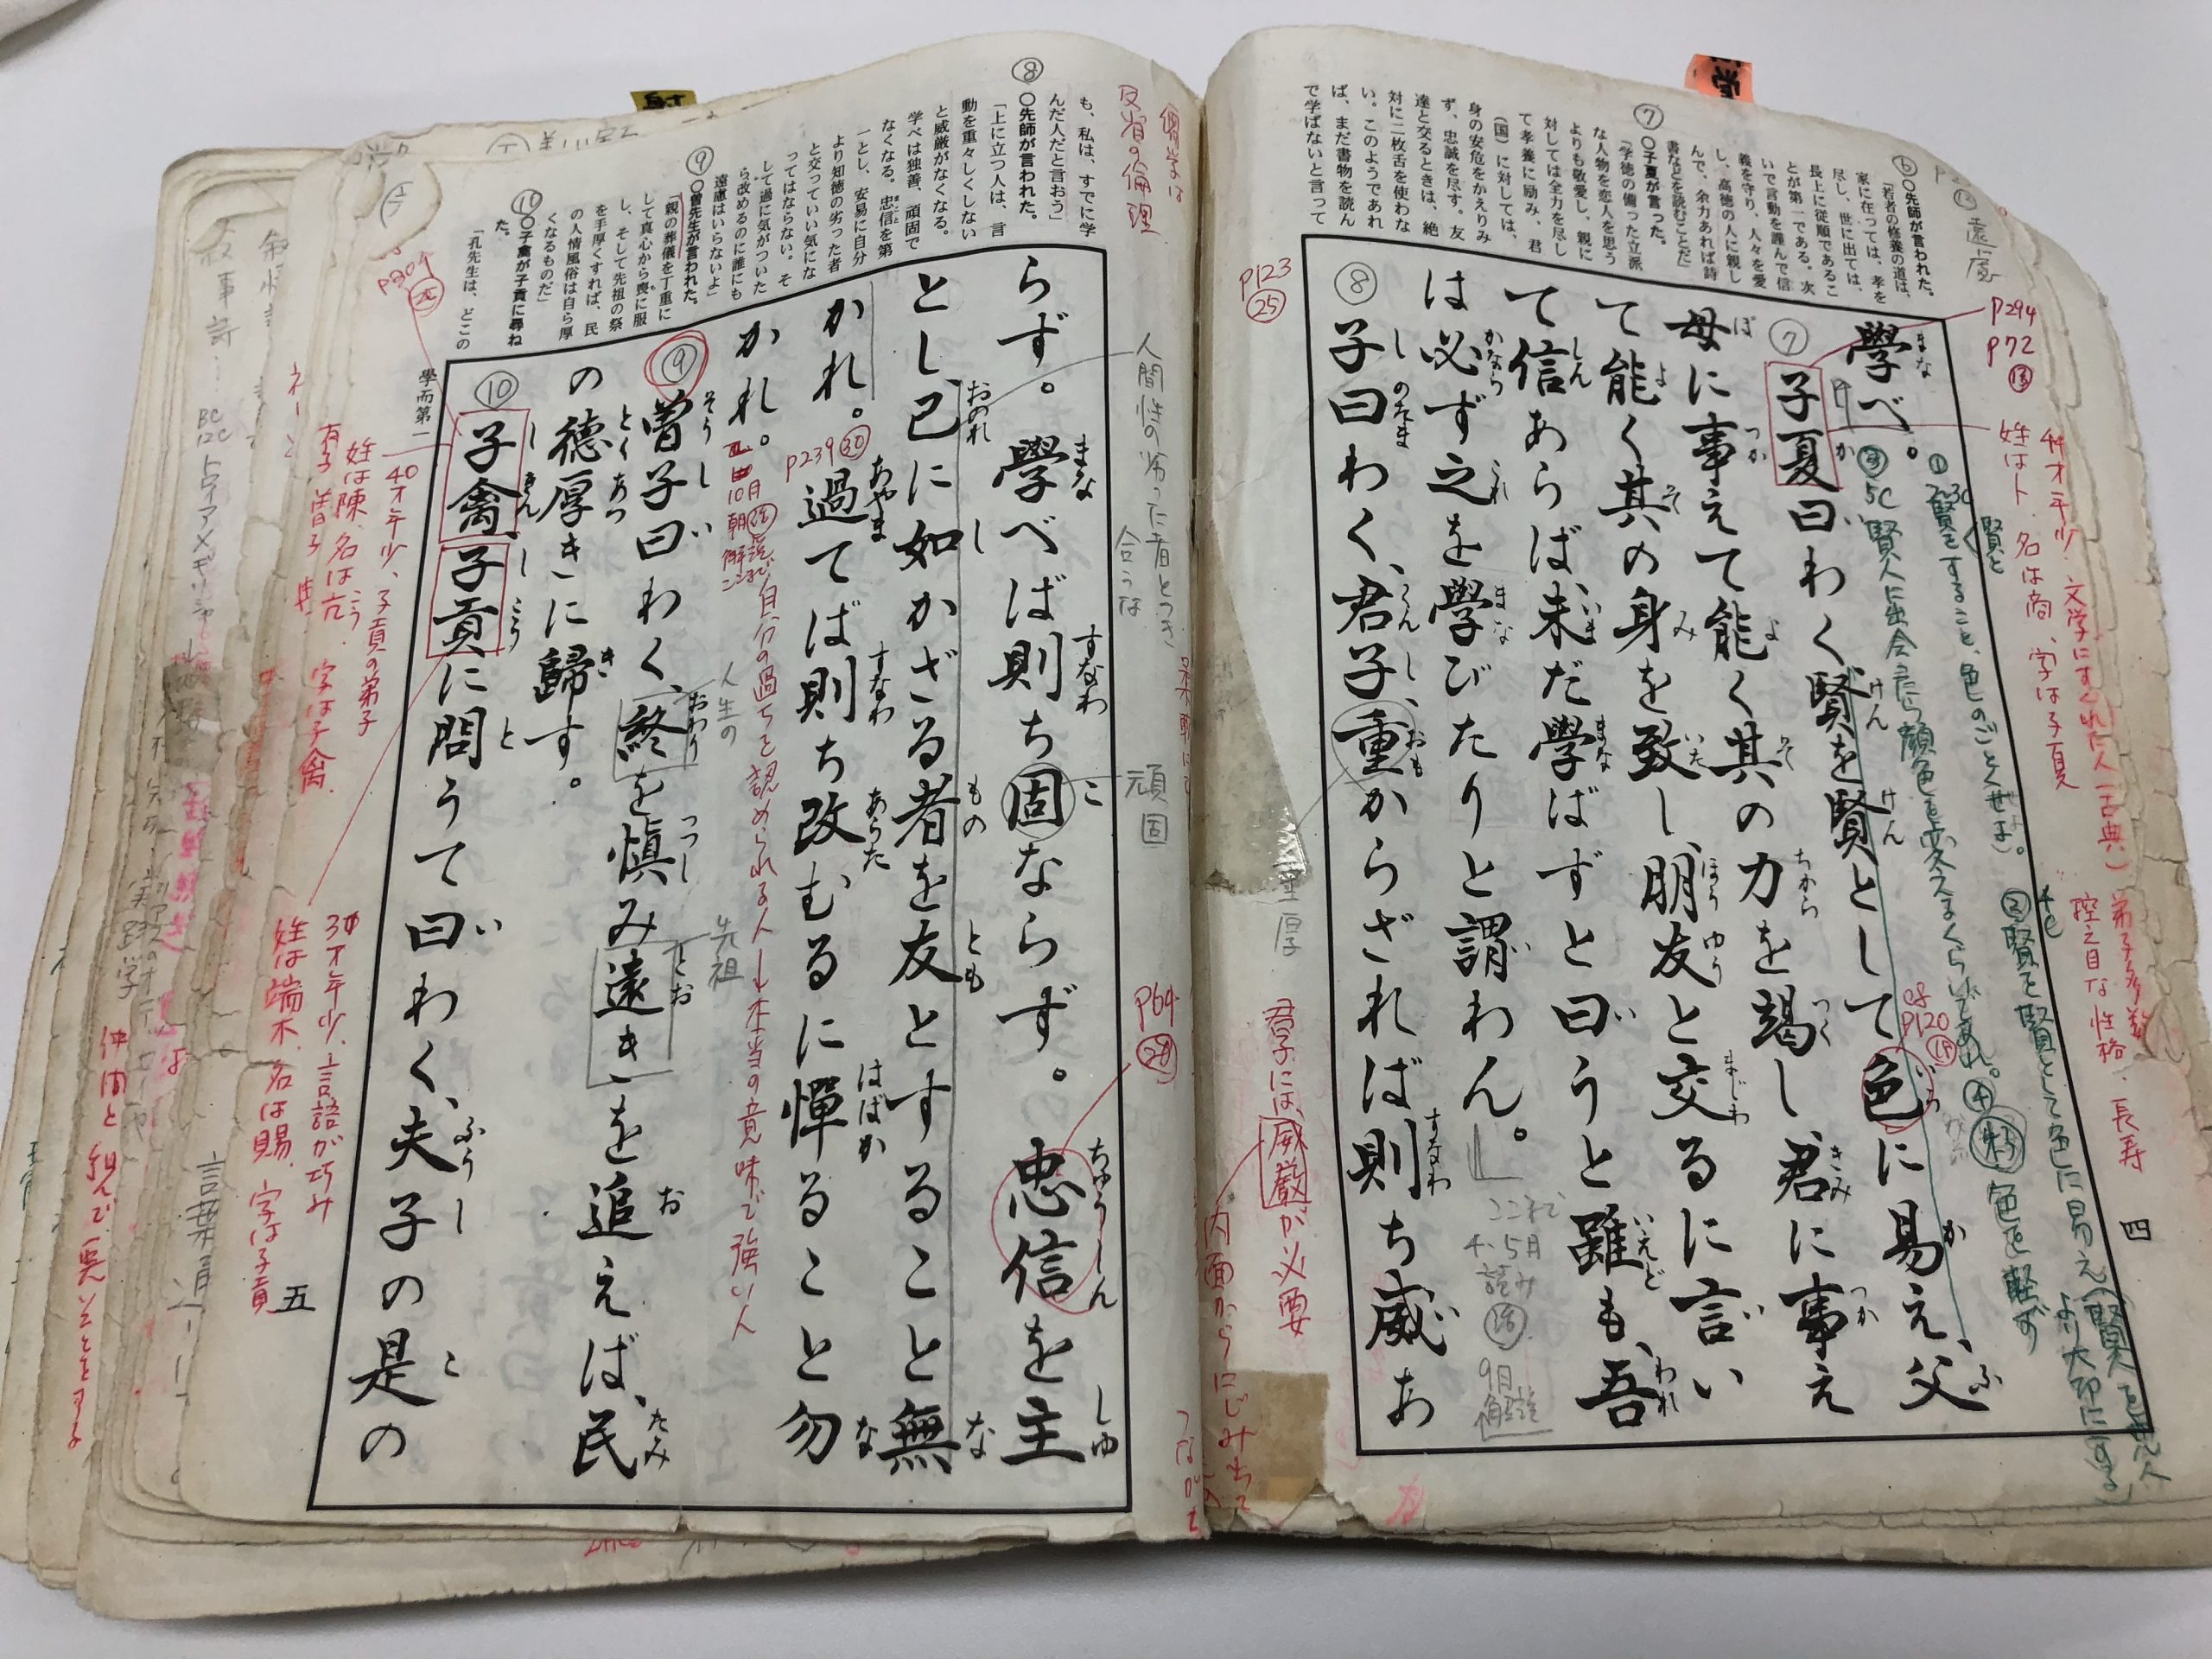 ⑥
〇先師が言われた。
「若者の修養の道は、
家に在っては、孝を
尽し、世に出ては、
長上に従順であるこ
とが第一である。次
いで言動を謹んで信
義を守り、人々を愛
し、高徳の人に親し
んで、余力あれば詩
書などを読むことだ」
⑦
〇子夏が言った。
「学徳の備った立派
な人物を恋人を思う
よりも敬愛し、親に
対しては全力を尽し
て孝養に励み、君
(国)に対しては、
身の安危をかえりみ
ず、忠誠を尽す。友
達と交るときは、絶
対に二枚舌を使わな
い。このようであれ
ば、まだ書物を読ん
で学ばないと言って
學べ。
まな
⑦
子夏曰わく賢を賢として色に易え、父
か い けん けん いろ か ふ
母に事えて能く其の力を竭し、君に事え
ぼ つか よ そ ちから つく きみ つか
て能く其の身を致し、朋友と交るに言い
よ そ み いた ほうゆう まじわ い
て信あらば、未だ學ばずと曰うと雖も、吾
しん いま まな い いえど われ
は必ず之を學びたりと謂わん。
かなら これ まな い
⑧
子曰わく、君子、重からざれば則ち威あ
しのたま くんし おも すなわ い
四
P294
P72
⑬
姓はト、名は商、字は子夏
44才年少、文学にすぐれた人(古典)
弟子多数
控え目な性格、長寿
賢を賢とすること、色のごとくせよ。
賢人に出会ったら顔色を変えるくらいであれ。
②賢を賢として色に易え
色を軽ず
cf
P120
⑲
ここまで
4、5月
読み
9月
P123
㉕
重厚
君子には、威厳が必要
内面からにじみ出て
⑧
も、私は、すでに学
んだ人だと言おう」
〇先師が言われた。
「上に立つ人は、言
動を重々しくしない
と威厳がなくなる。
学べは独善、頑固で
なくなる。忠信を第
一とし、安易に自分
より知徳の劣った者
と交っていい気にな
ってはならない。そ
して過に気がついた
ら改めるのに誰にも
遠慮はいらないよ」
⑨
〇曽先生が言われた。
「親の葬儀を丁重に
して真心から喪に服
し、そして先祖の祭
を手厚くすれば、民
の人情風俗は自ら厚
くなるものだ」
⑩
〇子禽が子貢に尋ね
た。
「孔先生は、どこの
儒学は
反省の倫理
人間性の劣った者とつき
合うな
頑固
P64
㉘
らず。學べば則ち固ならず。忠信を主
まな すなわ こ ちゅうしん しゅ
とし、己に如かざる者を友とすること無
おのれ し もの とも な
かれ。過てば則ち改むるに憚ること勿
あやま すなわ あらた はばか な
かれ。
P239
㉚
10月
自分の過ちを認められる人→本当の意味で強い人
⑨
曽子曰わく、終を慎み遠きを追えば、民
そうし い おわり つつし とお お たみ
の徳厚きに歸す。
とくあつ き
人生の
先祖
⑩
子禽、子貢に問うて曰わく、夫子の是の
しきん しこう と い ふうし こ
學而第一
五
40才年少、子貢の弟子
姓は陳、名は亢、字は子禽
こう
31才年少、言語が巧み
姓は端木、名は賜、字は子貢
仲間と組んで悪いことをする
叙事詩…
BC
12C
言葉